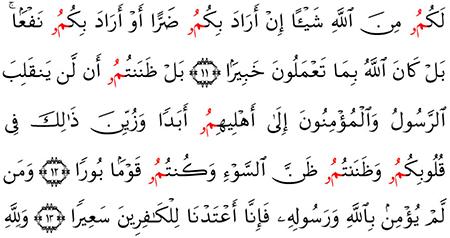 لَكُمُۥ مِنَ ٱللَّهِ شَيْـًٔا إِنْ أَرَادَ بِكُمُۥ ضَرًّا أَوْ أَرَادَ بِكُمُۥ نَفْعَۢاۚ
بَلْ كَانَ ٱللَّهُ بِمَا تَعْمَلُونَ خَبِيرَۢا ۝١١ بَلْ ظَنَنتُمُۥ أَن لَّن يَنقَلِبَ
ٱلرَّسُولُ وَٱلْمُؤْمِنُونَ إِلَىٰ أَهْلِيهِمُۥ أَبَدًا وَزُيِّنَ ذَٰلِكَ فِى
قُلُوبِكُمُۥ وَظَنَنتُمُۥ ظَنَّ ٱلسَّوْءِ وَكُنتُمُۥ قَوْمَۢا بُورًا ۝١٢ وَمَن
لَّمْ يُؤْمِنۢ بِٱللَّهِ وَرَسُولِهِۦ فَإِنَّا أَعْتَدْنَا لِلْكَـٰفِرِينَ سَعِيرًا ۝١٣ وَلِلَّهِ